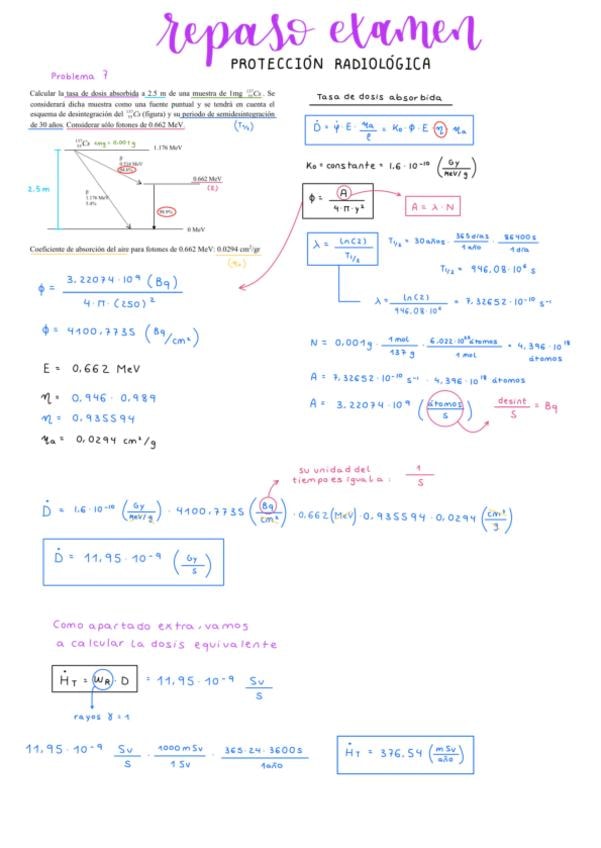 repaso examen
PROTECCIÓN RADIOLÓGICA
Problema 7
Calcular la tasa de dosis absorbida a 2.5 m de una muestra de 1mg ¹³⁷₅₅Cs. Se
considerará dicha muestra como una fuente puntual y se tendrá en cuenta el
esquema de desintegración del ¹³⁷₅₅Cs (figura) y su periodo de semidesintegración
de 30 años. Considerar sólo fotones de 0.662 MeV.
(T₁/₂)
¹³⁷₅₅Cs 1mg = 0.001g
1.176 MeV
β
0.514 MeV
94.6%
0.662 MeV
(E)
2.5 m
β
1.176 MeV
5.4%
98.9%
0 MeV
Coeficiente de absorción del aire para fotones de 0.662 MeV: 0.0294 cm²/gr
(ηa)
ϕ = 3.22074·10⁹ (Bq) / 4·π·(250)²
ϕ = 4100,7735 (Bq/cm²)
E = 0,662 MeV
η = 0,946 · 0,989
η = 0,935594
ηa = 0,0294 cm²/g
Tasa de dosis absorbida
Ḋ = φ̇ E · ηa/ρ = K₀·ϕ·E η ηa
K₀ = constante = 1.6·10⁻¹⁰ (Gy / MeV/g)
ϕ = A / 4·π·y²
A = λ·N
λ = ln(2) / T₁/₂
T₁/₂ = 30años · 365días / 1año · 86400s / 1día
T₁/₂ = 946,08·10⁶ s
λ = ln(2) / 946,08·10⁶ = 7,32652·10⁻¹⁰ s⁻¹
N = 0,001g · 1mol / 137g · 6,022·10²³ átomos / 1mol = 4,396·10¹⁸
átomos
A = 7,32652·10⁻¹⁰ s⁻¹ · 4,396·10¹⁸ átomos
A = 3.22074·10⁹ (átomos / s)
desint / s = Bq
su unidad del
tiempo es igual a: 1 / s
Ḋ = 1.6·10⁻¹⁰ (Gy / MeV/g) · 4100,7735 (Bq / cm²) · 0,662 (MeV) · 0,935594 · 0,0294 (cm² / g)
Ḋ = 11,95·10⁻⁹ (Gy / s)
Como apartado extra, vamos
a calcular la dosis equivalente
Ḣ_T = W_R · D = 11,95·10⁻⁹ Sv / s
rayos γ = 1
11,95·10⁻⁹ Sv / s · 1000 mSv / 1 Sv · 365·24·3600s / 1año
Ḣ_T = 376,54 (mSv / año)